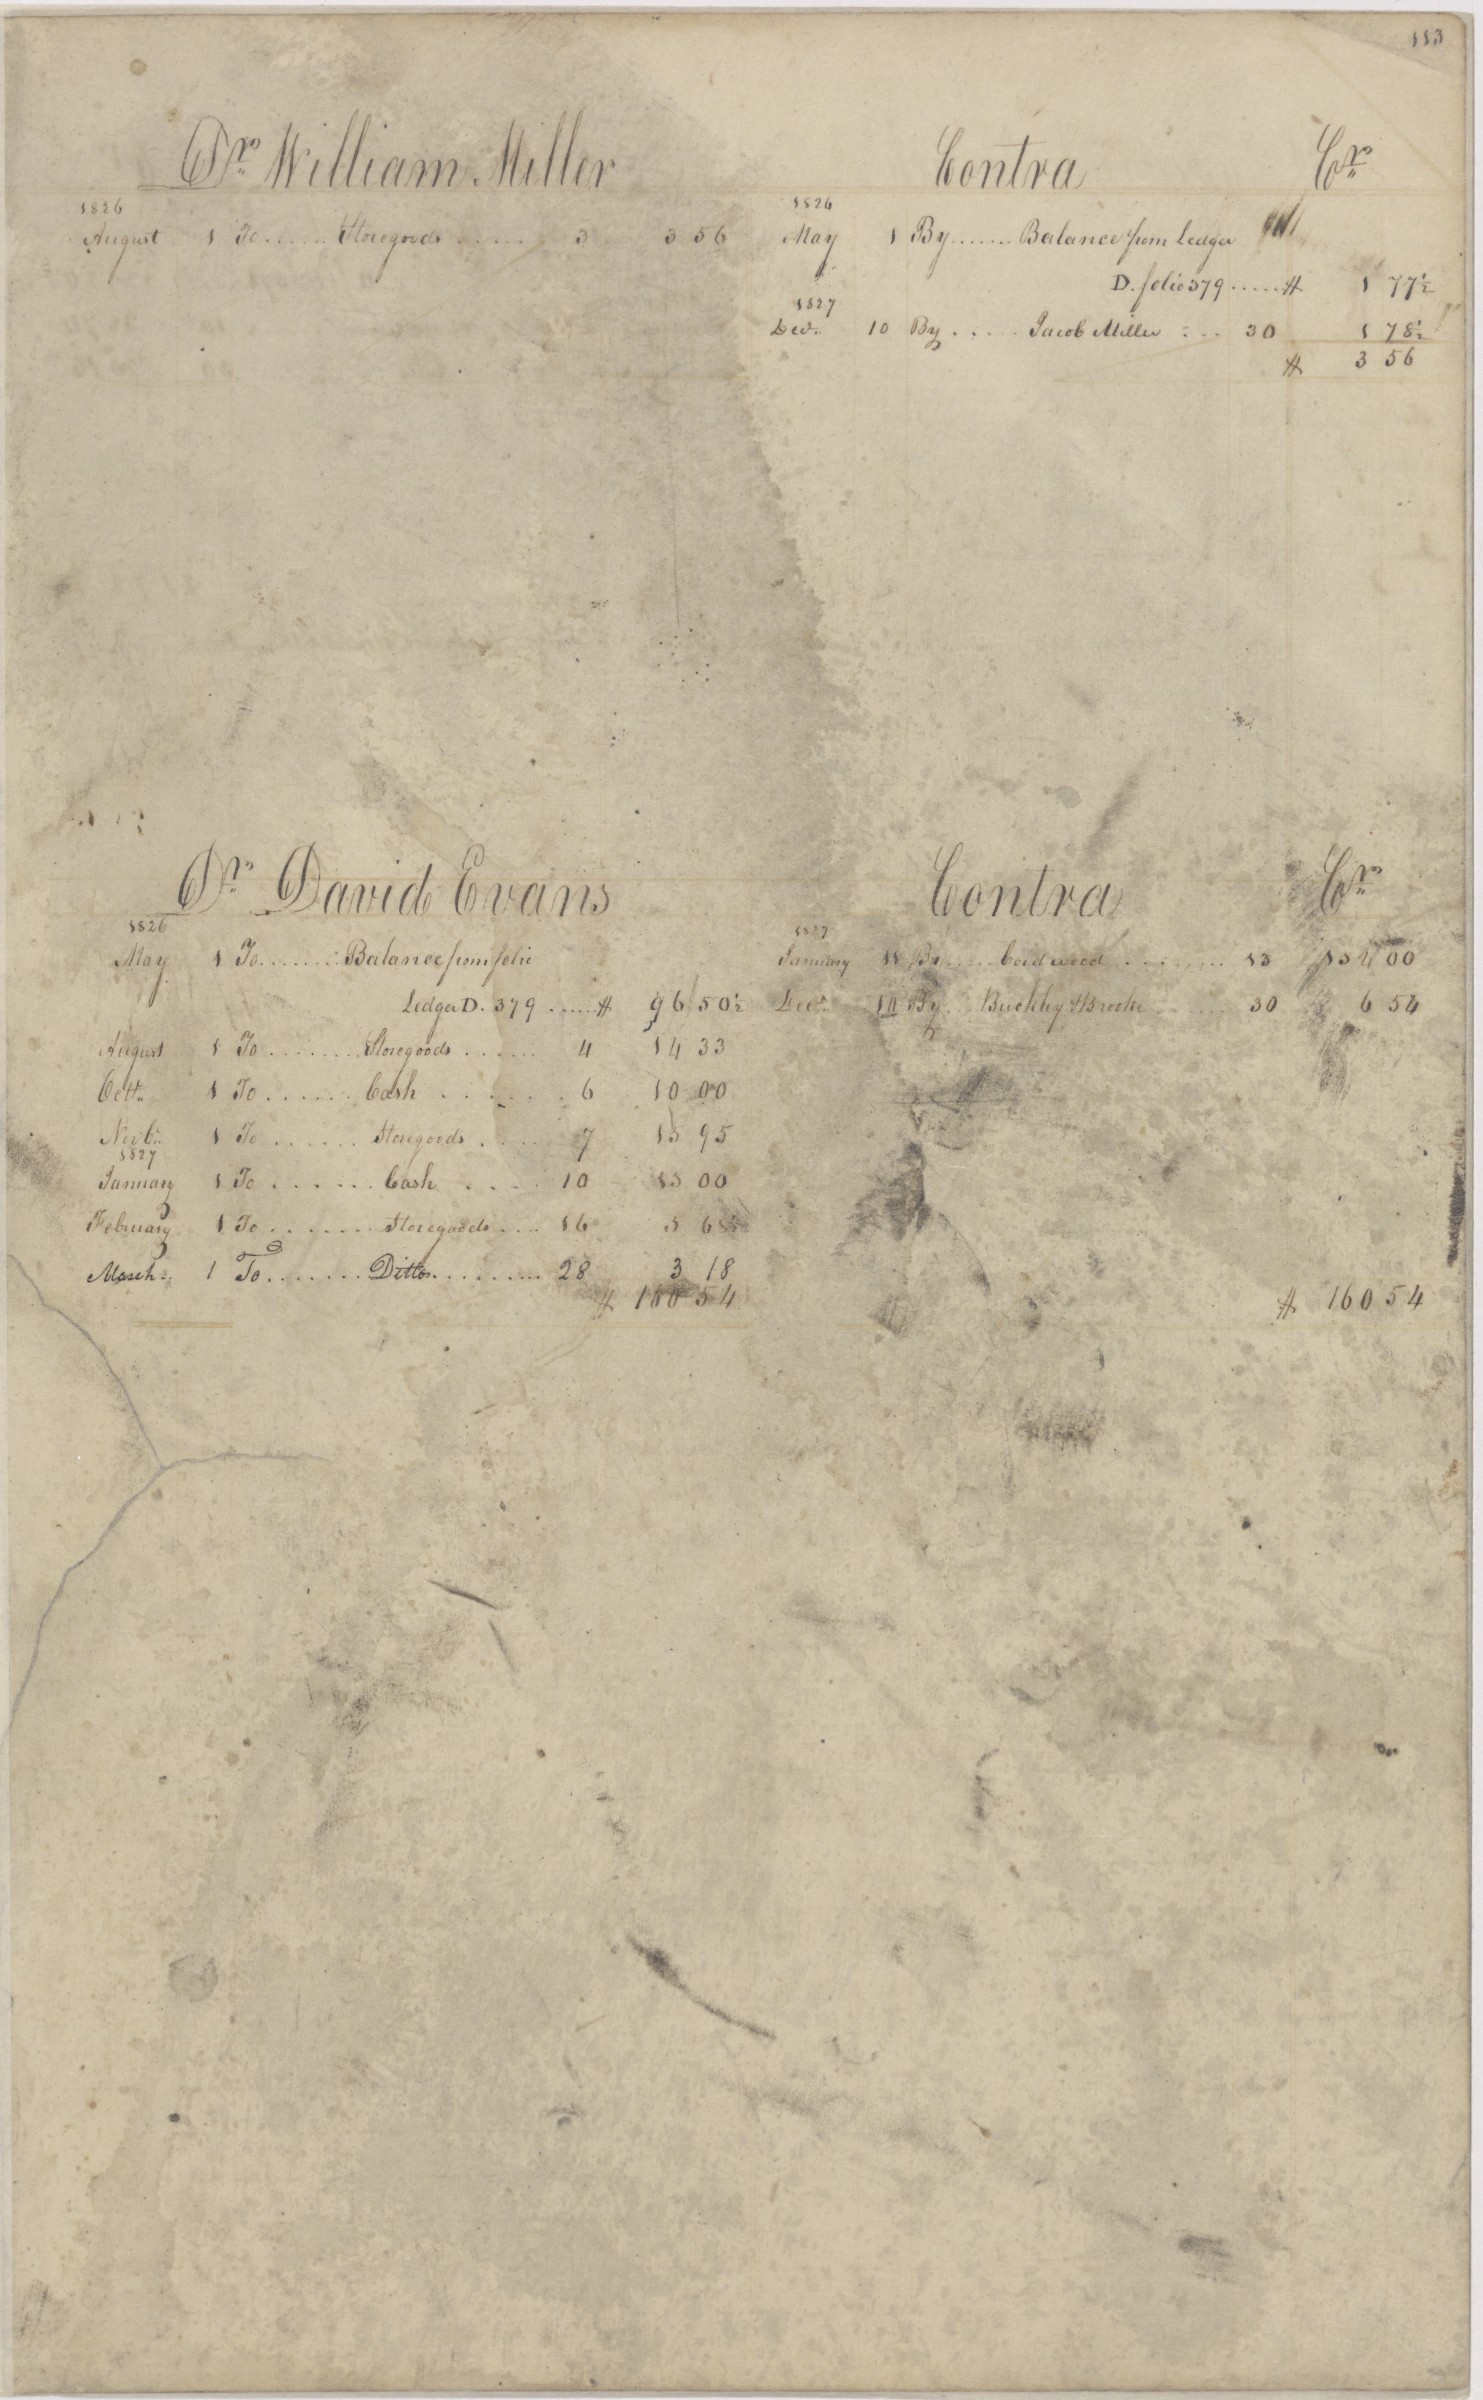 113
Dr. William Miller Contra Cr.
1826 1826
August 1 To ...... Storegoods ..... 3 3 56 May 1 By ...... Balance from Ledger
D. folio 379 ..... $ 1 77½
1827
Decr. 10 By ..... Jacob Miller ... 30 1 78½
$ 3 56
Dr. David Evans Contra Cr.
1826 1827
May 1 To ...... Balance from folio January 11 By ..... Cord wood ........ 13 154 00
Ledger D. 379 ..... $ 96 50½ Decr. 10 By Buckley & Brooke ..... 30 6 54
August 1 To ........ Storegoods ...... 4 14 33
Octr. 1 To ...... Cash ...... 6 10 00
Novbr. 1 To ...... Storegoods .... 7 15 95
1827
January 1 To ...... Cash .... 10 15 00
February 1 To ....... Storegoods ... 16 5 68½
March 1 To ....... Ditto ......... 28 3 18
$ 160 54 $ 160 54